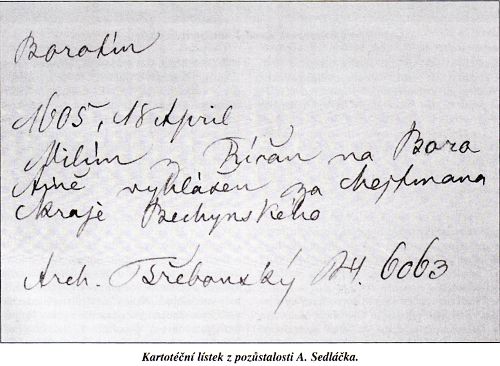 Borotín
1605, 18 April
Vilím z Říčan na Boro
tíně vyhlášen za hejtmana
kraje Bechynského
Arch. Třeboňský 6063
Kartotéční lístek z pozůstalosti A. Sedláčka.